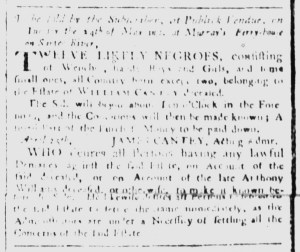 To be sold by the Subscriber, at Publick Vendue, on
the 14th of May at Murray's Ferry-house
on Santee River,
TWELVE LIKELY NEGROES, consisting
of Wenches, Boys and Girls, and some
small ones, all Country born except two, belonging to
the Estate of WILLIAM CANTEY deceased.
The Sale will begin about o'Clock in the Fore
noon, and the Conditions will then be made known; A
Part of the Purchase Money to be paid down.
April JAMES CANTEY, Acting admr.
WHO desires all Persons having any lawful
Demands against the said Estate, on Account of the
said deceased, or on Account of the late Anthony
Will deceased, or otherwise, to make it known
Likewise all Persons
the said Estate to settle the same immediately, as the
Administrators are under a Necessity of settling all the
Concerns of the said Estate